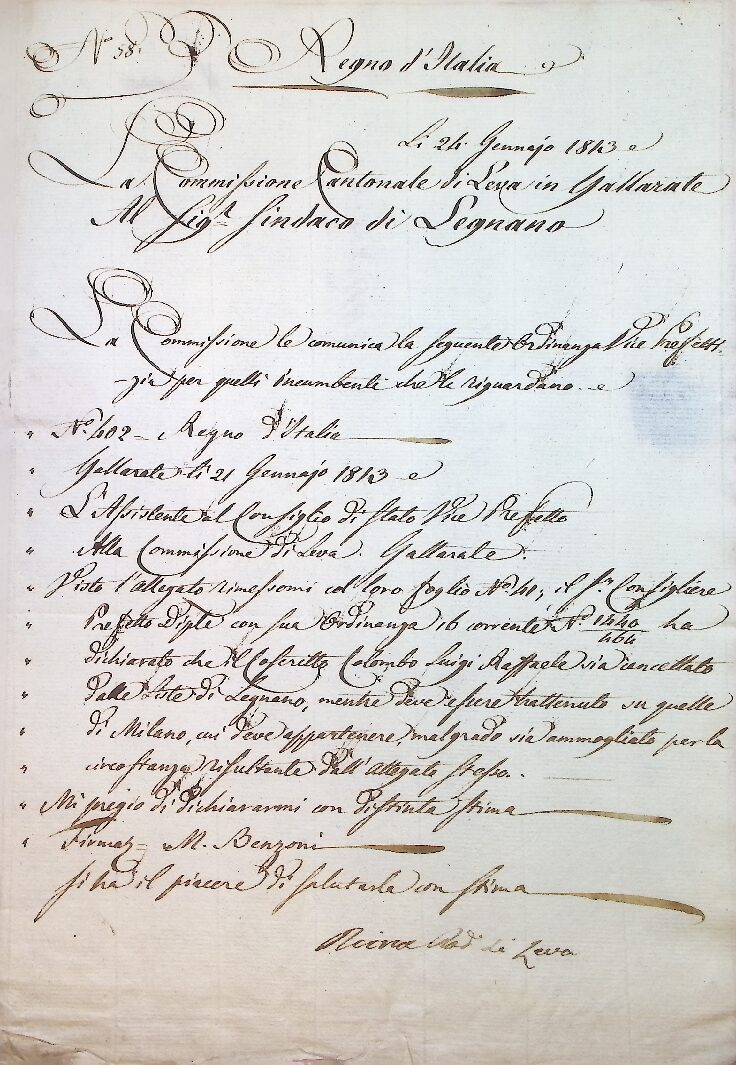 N.° 58. Regno d'Italia
Li 24 Gennajo 1813
La Commissione Cantonale di Leva in Gallarate
Al Sig.r Sindaco di Legnano
La Commissione le comunica la seguente Ordinanza Vice Prefetti-
-zia per quelli incumbenti che le riguardano.
" N.° 402 = Regno d'Italia
" Gallarate li 21 Gennajo 1813
" L'Assistente al Consiglio di Stato Vice Prefetto
" Alla Commissione di Leva. Gallarate.
" Visto l'allegato rimessomi col loro foglio N.° 40; il Sr. Consigliere
" Prefetto Diple con sua Ordinanza 16 corrente N.° 1440/464 ha
" dichiarato che il Coscritto Colombo Luigi Raffaele sia cancellato
" dalle Liste di Legnano, mentre deve essere trattenuto su quelle
" di Milano, cui deve appartenere, malgrado sia ammogliato per la
" circostanza risultante dall'allegato stesso.
" Mi pregio di dichiararmi con distinta stima
" Firmaz = M. Benzoni
Si ha il piacere di salutarla con stima
di Leva